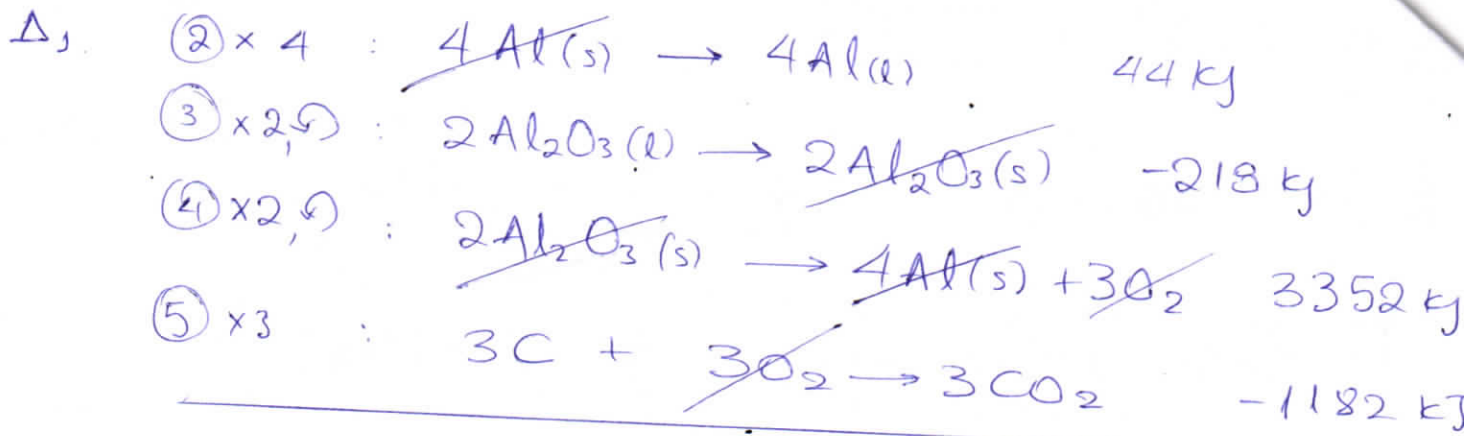 Δ, ② × 4 : 4 Al(s) → 4 Al(l) 44 kJ
③ × 2, ↶ : 2Al₂O₃(l) → 2Al₂O₃(s) -218 kJ
④ × 2, ↶ : 2Al₂O₃(s) → 4Al(s) + 3O₂ 3352 kJ
⑤ × 3 : 3C + 3O₂ → 3CO₂ -1182 kJ